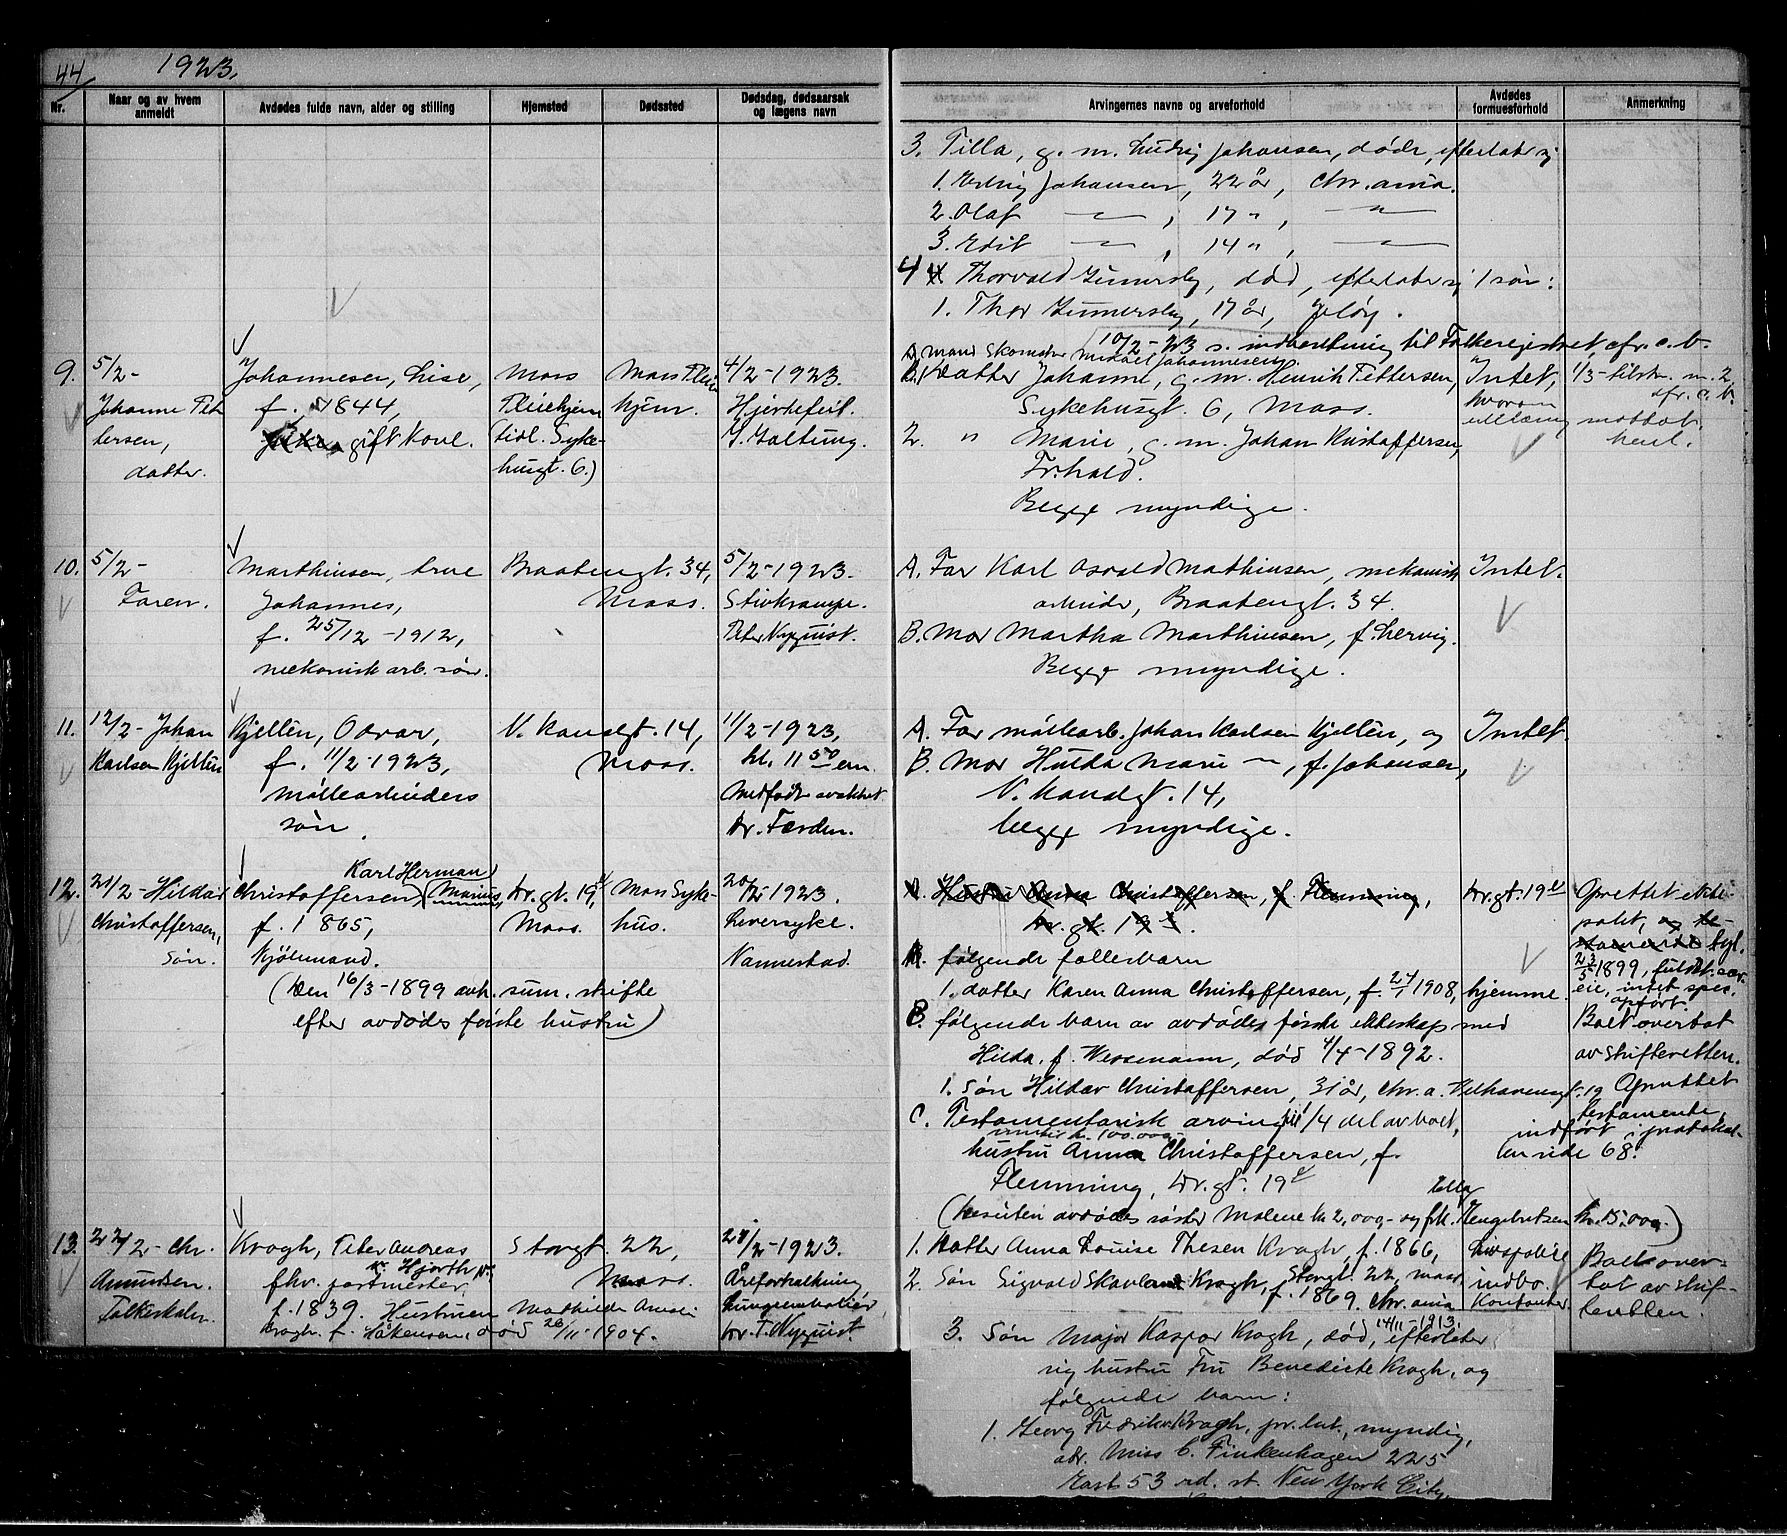 44 1923.
Nr.
Naar og av hvem anmeldt
Avdødes fulde navn, alder og stilling
Hjemsted
Dødssted
Dødsdag, dødsaarsak og lægens navn
Arvingernes navne og arveforhold
Avdødes formuesforhold
Anmerkning
3. Tilla, g. m. Ludvig Johansen, døde, efterlater sig
1. Erling Johansen, 22 år, Chr.ania.
2. Olaf — " — , 17 " , — " —
3. Edit — " — , 14 " , — " —
4 Thorvald Gumersby, død, efterlater sig 1 søn:
1. Thor Gumersby, 17 år, Jeløy.
10/2-23 s. indberetning til Folkeregistret, cfr. c. b.
9. 5/2-
Johanne Pet
tersen,
datter.
Johannesen, Lise,
f. 1844,
gift Kone.
Moss
Pleiehjem
(tidl. Syke-
husgt. 6.)
Moss Pleie
hjem.
4/2-1923.
Hjertefeil.
Y. Galtung.
A. mand Skomaker Mikael Johannesen
B. 1 Datter Johanne, g. m. Henrik Pettersen,
Sykehusgt. 6, Moss.
2. " Marie, g. m. Johan Kristoffersen,
Fr.hald.
Begge myndige.
Intet,
hvorom
utlæg
1/3-tilstr. m. 2,
cfr. c. b.
mottat
10. 5/2-
Faren.
Marthinsen, Arne
Johannes,
f. 25/12-1912,
mekanisk arb. søn.
Braatengt. 34,
Moss.
5/2-1923.
Stivkrampe.
Peter Nyquist.
A. Far Karl Osvald Mathinsen, mekanisk
arbeider, Braatengt. 34.
B. Mor Martha Marthinsen, f. Lervig.
Begge myndige.
Intet.
11. 12/2- Johan
Karlsen Kjellén
Kjellén, Odvar,
f. 11/2-1923,
møllearbeiders
søn.
V. Kanalgt. 14,
Moss.
11/2-1923,
kl. 11 50 em.
Medfødt svakhet.
Dr. Færden.
A. Far møllearb. Johan Karlsen Kjellén, og
B. Mor Hulda Marie — " —, f. Johansen,
V. Kanalgt. 14,
begge myndige.
Intet.
12. 21/2- Hildar
Christoffersen,
Søn.
Karl Herman
Christoffersen, (Marius,
f. 1865,
Kjøbmand.
(Den 16/3-1899 avh. sum. skifte
efter avdødes første hustru)
Dr. gt. 19,
Moss.
Moss Syke-
hus.
20/2-1923.
Leversyke.
Vannestad.
A. Hustru Anna Christoffersen, f. Flemming,
Dr. gt. 19.
A. følgende fællesbarn
1. datter Karen Anna Christoffersen, f. 27/1 1908, hjemme.
B. følgende barn av avdødes første ekteskap med
Hilda, f. Wessmann, død 4/4-1892.
1. Søn Hildar Christoffersen, 31 år, Chr.a. Welhavensgt. 19
C. Testamentarisk arving til 1/4 del av boet,
kr. 100.000
hustru Anna Christoffersen, f.
Flemming, Dr. gt. 19
(Desuten avdødes søster Malene kr 2,000,- og frk. Engebretsen kr. 15.000)
Dr. gt. 19
Oprettet ekte-
pakt,
1899, fuldst. sær-
eie, intet spes.
opført.
Boet overtat
av skifteretten.
Oprettet
testamente,
indført i protokol-
len side 68.
13. 22/2- Chr.
Amundsen.
Falkeskaln.
Krogh, Peter Andreas
Hjorth
fhv. postmester,
f. 1839. Hustruen Mathilde Amalie
Krogh, f. Håkensen, død 26/11-1904.
Storgt. 22,
Moss.
21/2-1923.
Åreforkalkning,
Lungeemboli
Dr. T. Nyquist.
1. Datter Anna Louise Thesen Krogh, f. 1866,
2. Søn Sigvald Skavland Krogh, Storgt. 22, Moss
f. 1869, Chr.ania
3. Søn Major Kaspar Krogh, død 14/11-1913, efterlater
sig hustru Fru Benedicte Krogh, og
følgende barn:
1. Georg Fredrik Krogh, pr. lut., myndig,
adr. Miss C. Finkenhagen 225
East 53 rd. st. New York City.
Livspolice
indbo
Kontanter.
Boet over-
tat av skif-
teretten